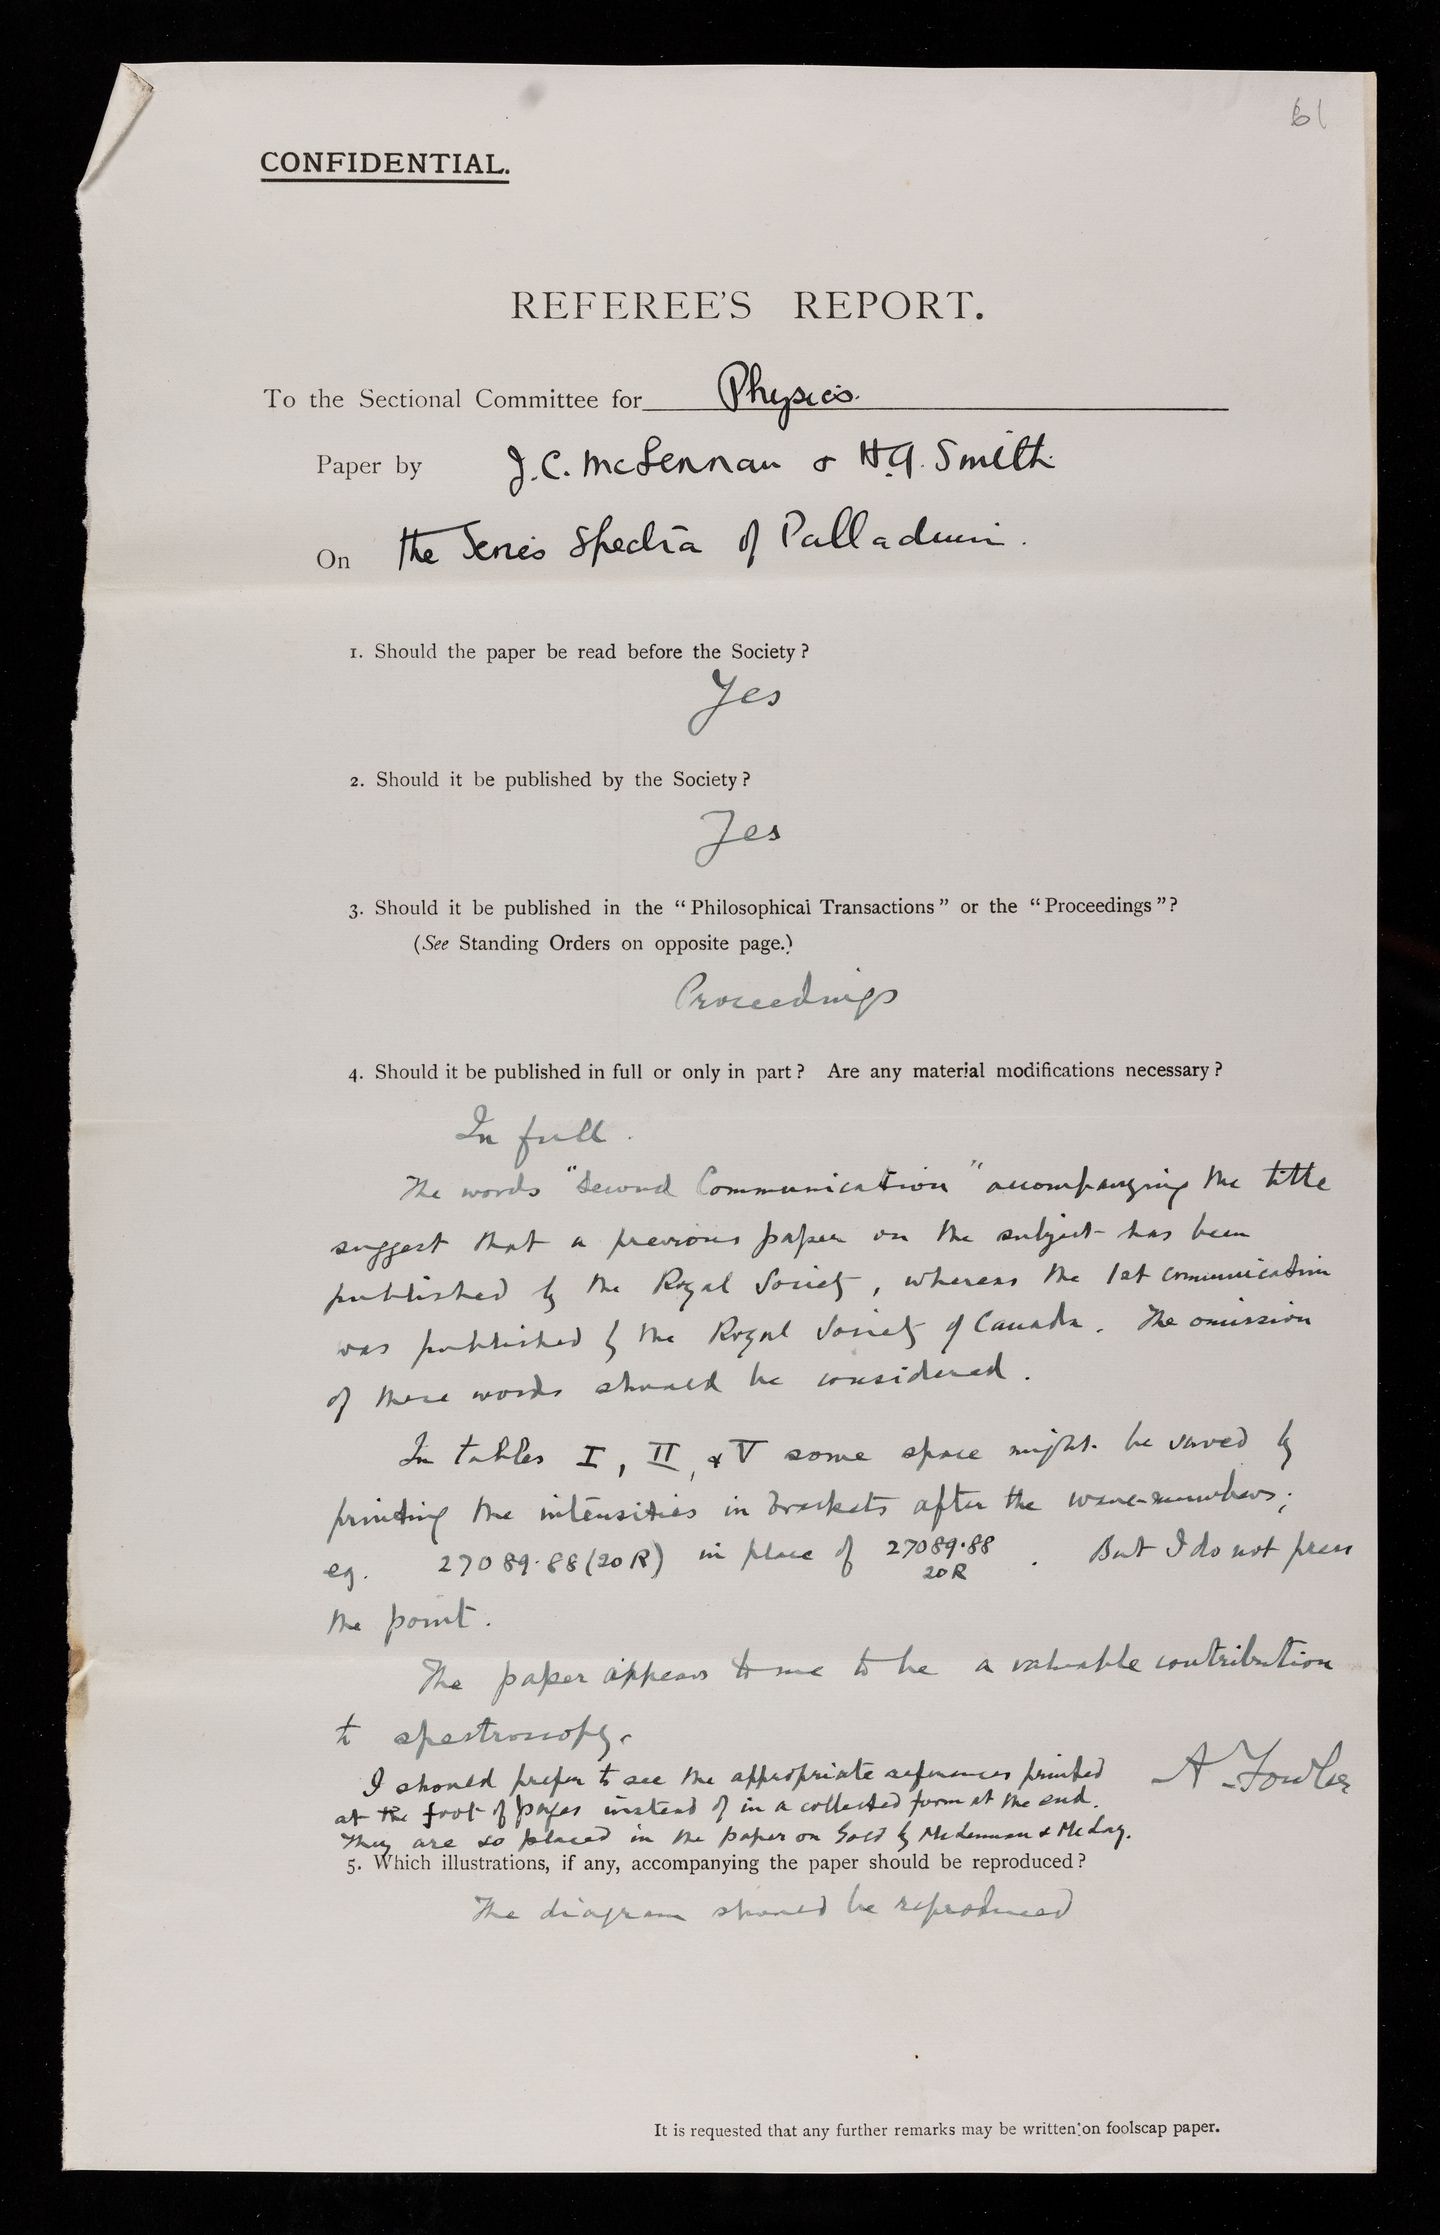 61
CONFIDENTIAL.
REFEREE'S REPORT.
To the Sectional Committee for Physics.
Paper by J.C. McLennan & H.G. Smith
On the Series Spectra of Palladium.
1. Should the paper be read before the Society?
Yes
2. Should it be published by the Society?
Yes
3. Should it be published in the "Philosophical Transactions" or the "Proceedings"?
(See Standing Orders on opposite page.)
Proceedings
4. Should it be published in full or only in part? Are any material modifications necessary?
In full.
The words "Second Communication" accompanying the title
suggest that a previous paper on the subject has been
published by the Royal Society, whereas the 1st communication
was published by the Royal Society of Canada. The omission
of these words should be considered.
In tables I, II, & V some space might be saved by
printing the intensities in brackets after the wave-numbers;
eg. 27089.88(20R) in place of 27089.88 . But I do not press
20R
the point.
The paper appears to me to be a valuable contribution
to spectroscopy.
I should prefer to see the appropriate references printed
A Fowler
at the foot of pages instead of in a collected form at the end.
They are so placed in the paper on Gold by McLennan & McLay.
5. Which illustrations, if any, accompanying the paper should be reproduced?
The diagram should be reproduced
It is requested that any further remarks may be written on foolscap paper.